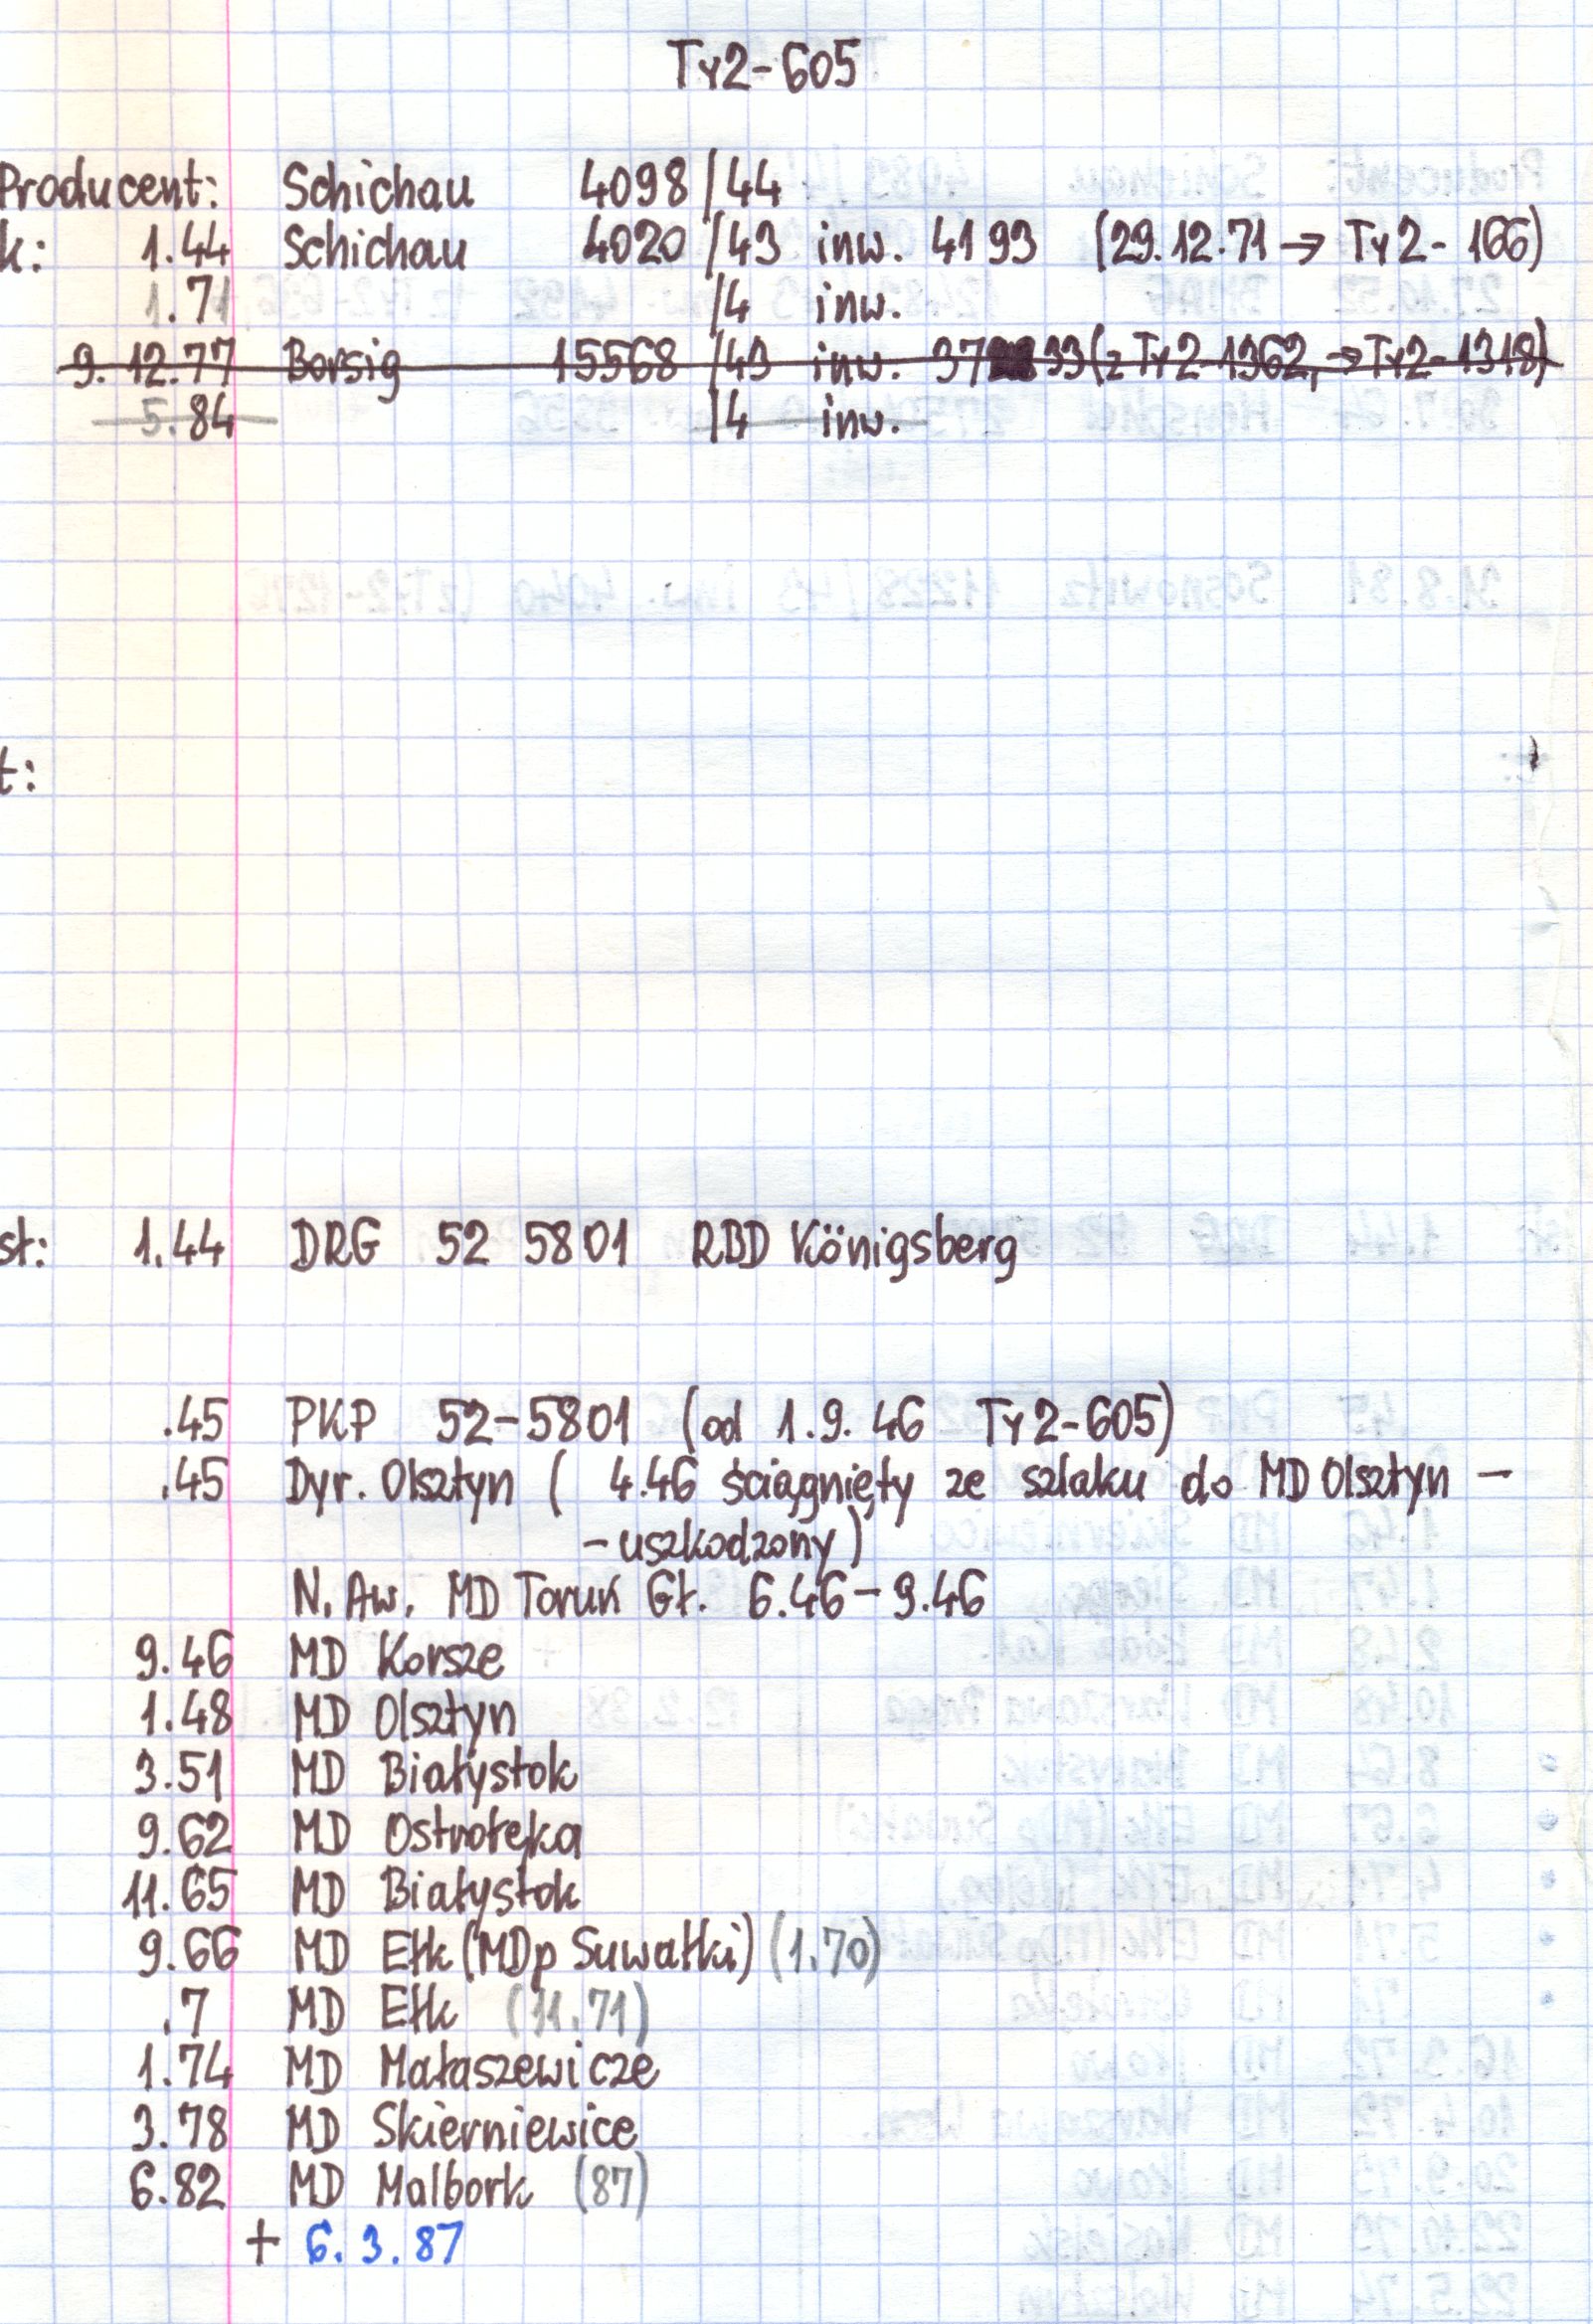 Ty2-605
Producent: Schichau 4098/44
k: 1.44 Schichau 4020/43 inw. 4193 (29.12.71 → Ty2-166)
1.71 /4 inw.
9.12.77 Borsig 15568/43 inw. 37 33 (z Ty2-1362, → Ty2-1318)
5.84 /4 inw.
t:
st: 1.44 DRG 52 5801 RBD Königsberg
.45 PKP 52-5801 (od 1.9.46 Ty2-605)
.45 Dyr. Olsztyn ( 4.46 ściągnięty ze szlaku do MD Olsztyn –
– uszkodzony)
N. Aw. MD Toruń Gł. 6.46 – 9.46
9.46 MD Korsze
1.48 MD Olsztyn
3.51 MD Białystok
9.62 MD Ostrołęka
11.65 MD Białystok
9.66 MD Ełk (MDp Suwałki) (1.70)
.7 MD Ełk (11.71)
1.74 MD Małaszewicze
3.78 MD Skierniewice
6.82 MD Malbork (87)
+ 6.3.87